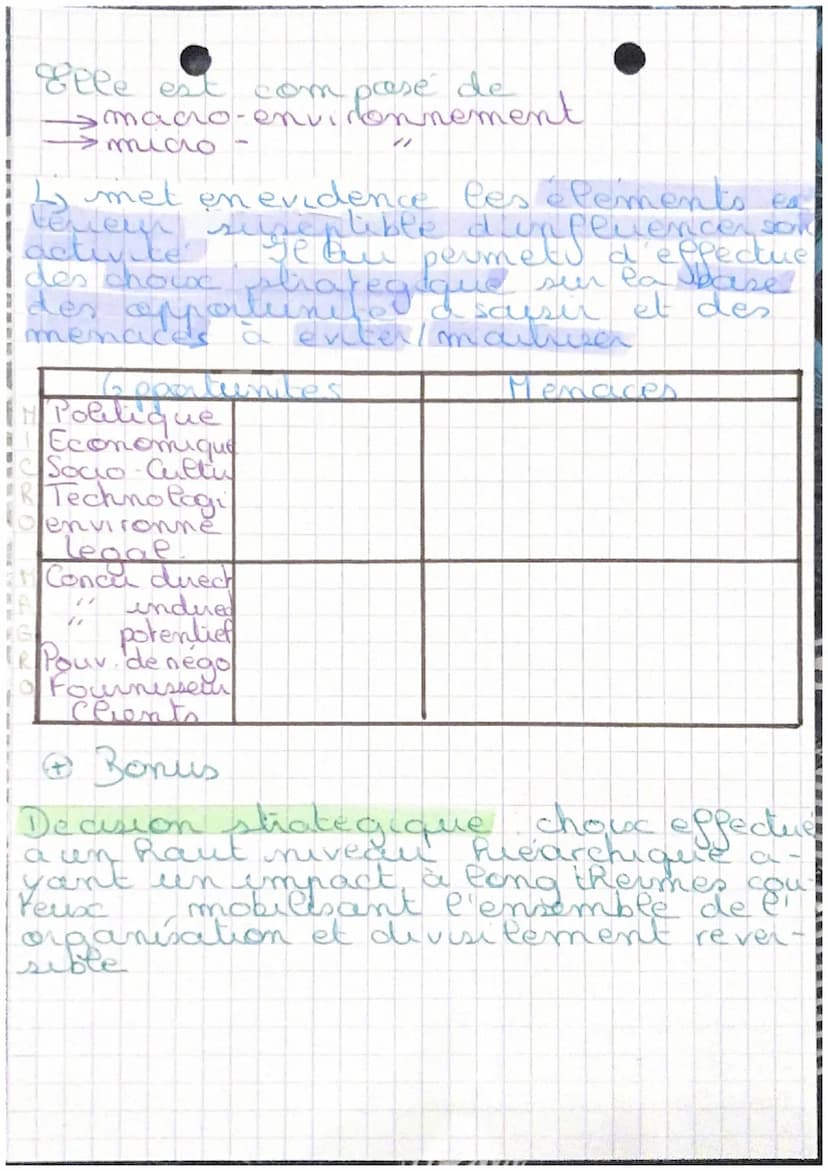 Elle est composé de
→ macro-environnement
→ micro - "
↳ met en evidence les élements ex
terieur suseptible d'influencer son
activité. Il lui permets d'effectue
des choix strategique sur la base
des opportunité à saisir et des
menaces à eviter/maitriser
Opportunites Menaces
M Politique
I Economique
C Socio-Cultu
R Technologi
O environne
legal.
M Concu direct
A " indirect
C " potentiel
R Pouv. de négo
O Fournisseur
Clients
⊕ Bonus
Decision strategique choix effectué
a un haut niveau hiearchique a-
yant un impact à long thermes cou-
teux mobilisant l'ensemble de l'
organisation et rever-
sible